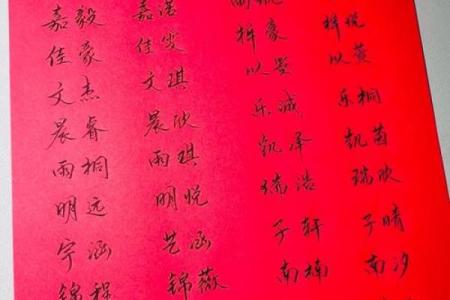 嘉毅 嘉
佳豪 佳雯 梓豪 梓悦
文杰 文琪 以 以萱
晨睿 晨欣 乐诚 乐桐
雨桐 雨琪 凯泽 凯茵
明远 明悦 瑞浩 瑞欣
宇涵 艺涵 子轩 子晴
锦程 锦薇 南楠 南汐